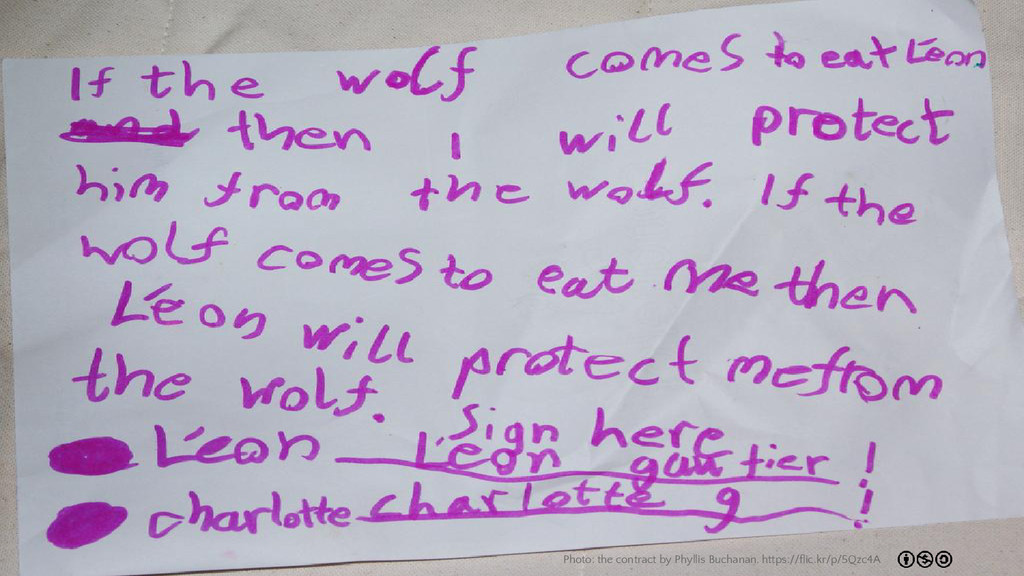 If the wolf comes to eat Léon
and then I will protect
him from the wolf. If the
wolf comes to eat me then
Léon will protect me from
the wolf.
Sign here
Léon Léon gautier !
charlotte charlotte g !
Photo: the contract by Phyllis Buchanan. https://flic.kr/p/5Qzc4A